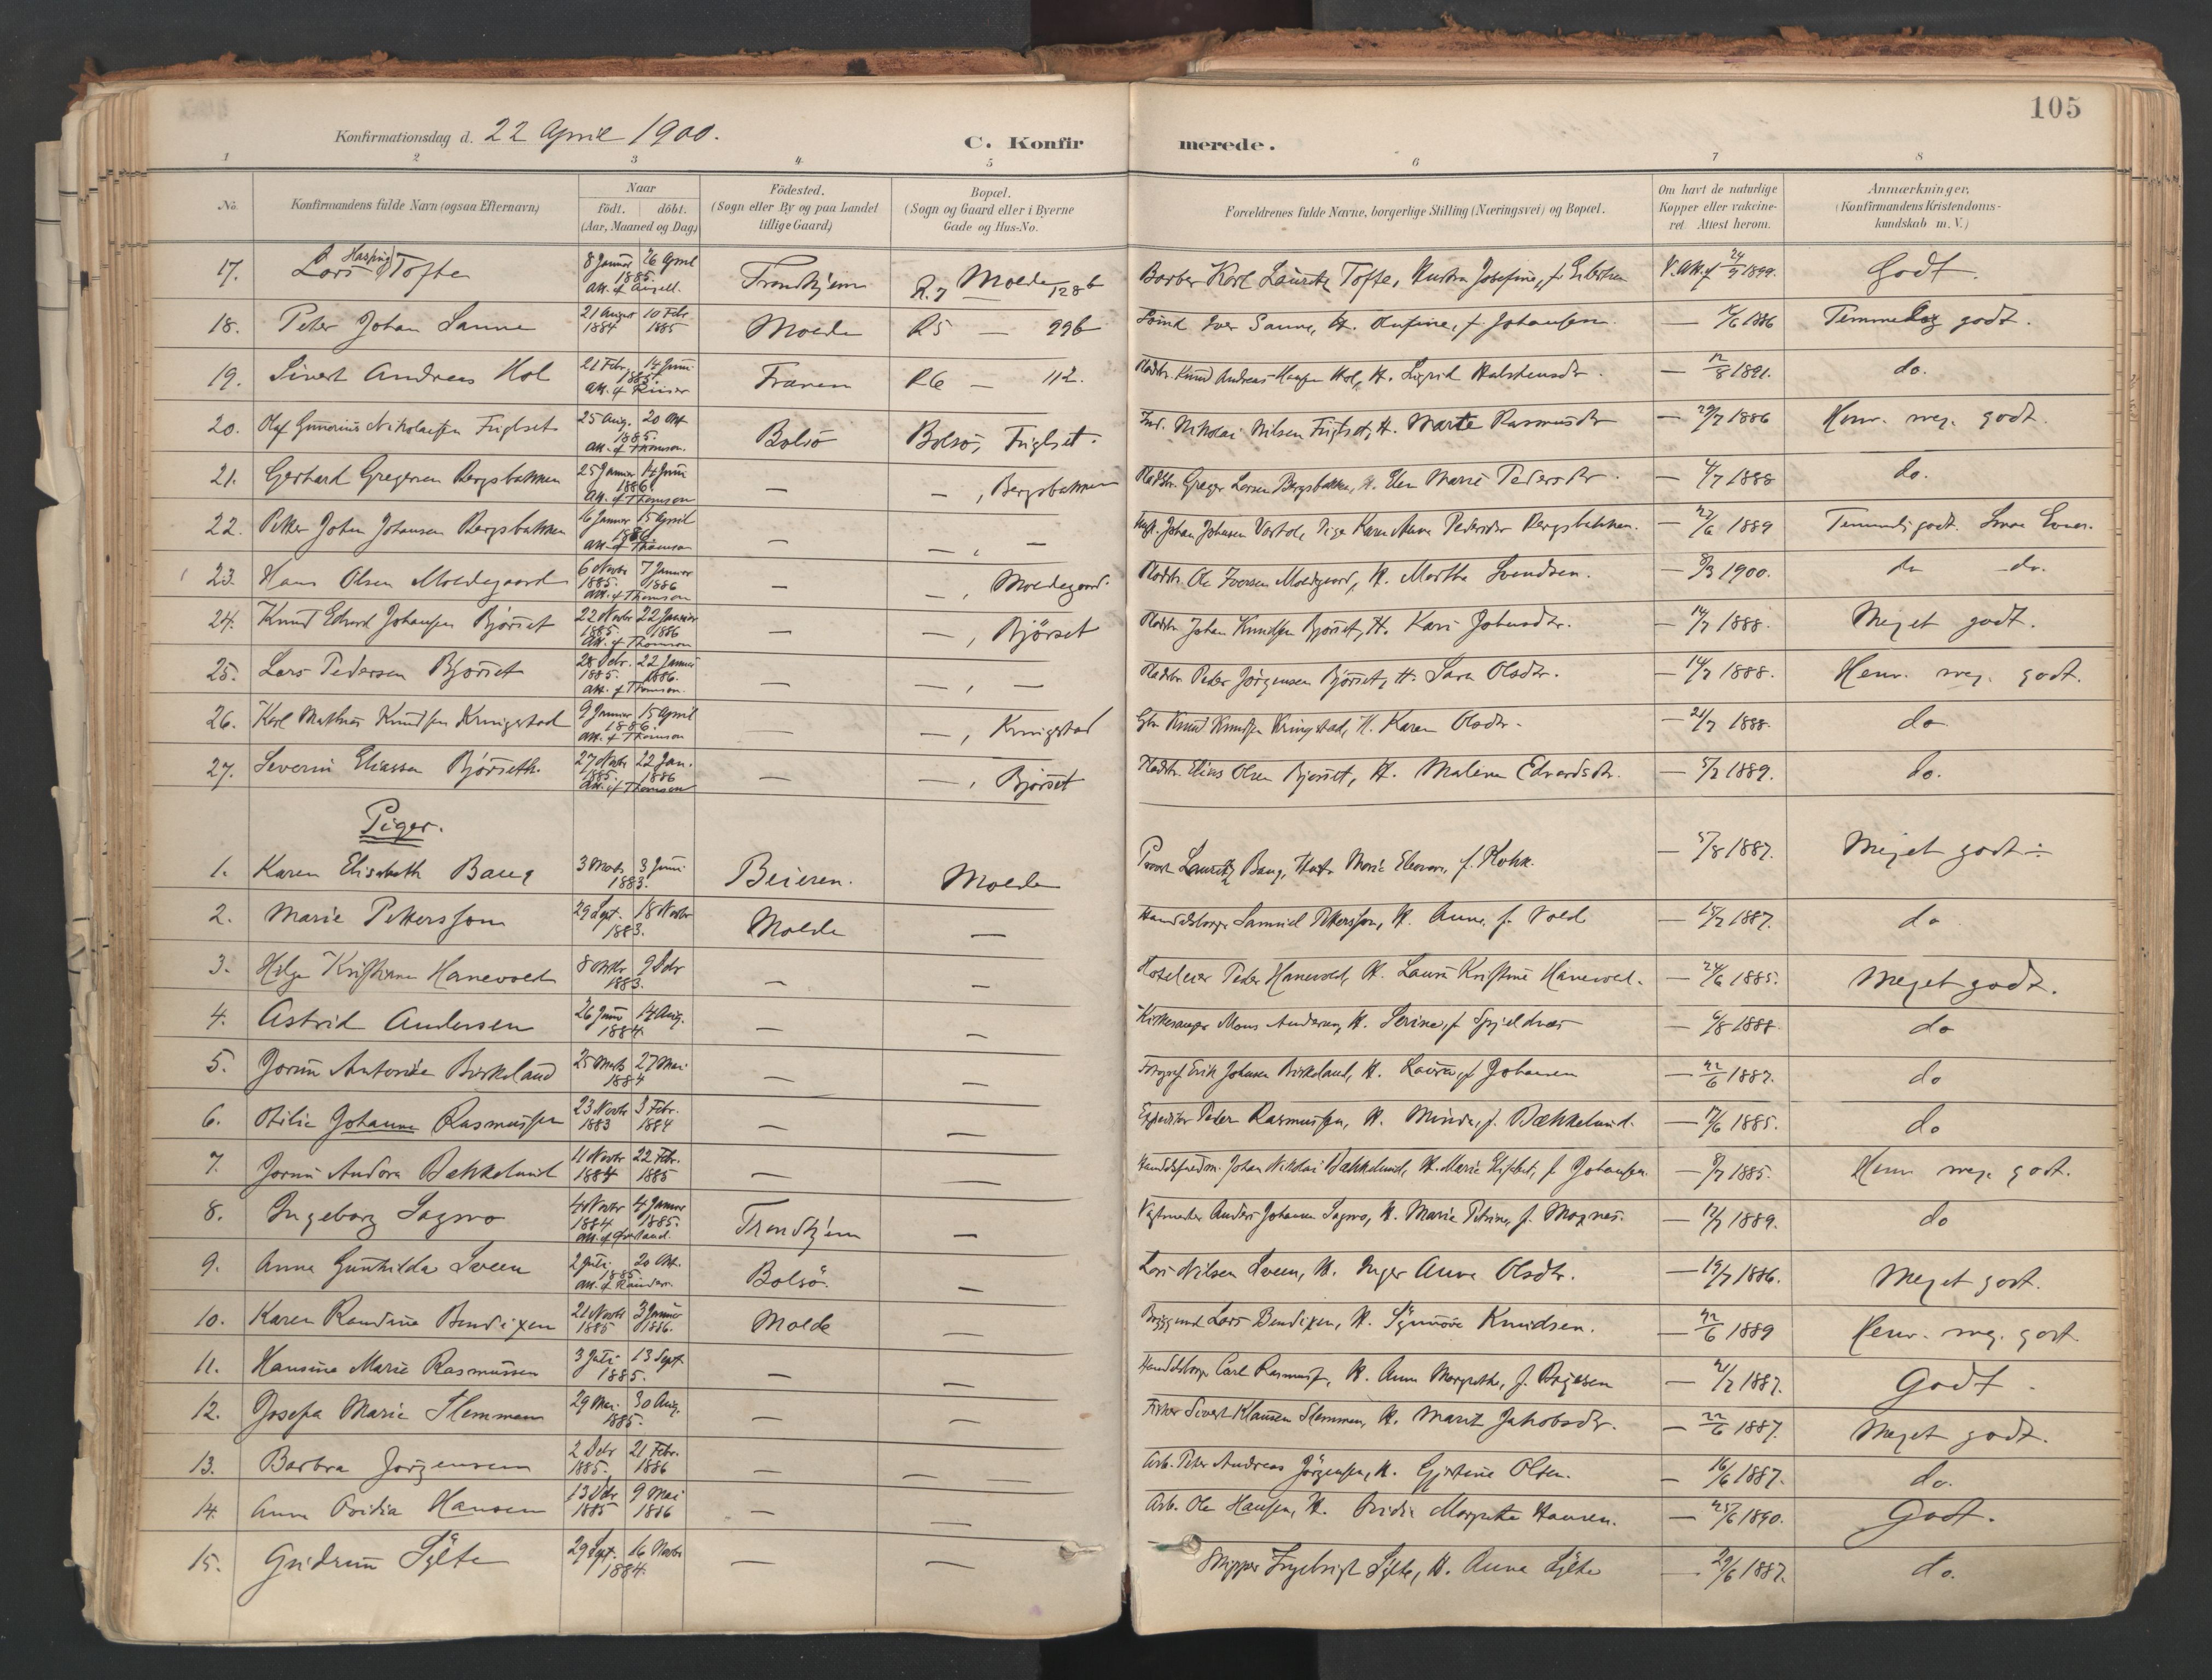 105
Konfirmationsdag d. 22 April 1900.
C. Konfirmerede.
1 2 3 4 5 6 7 8
No. Konfirmandens fulde Navn (ogsaa Efternavn) Naar født. døbt. (Aar, Maaned og Dag) Fødested. (Sogn eller By og paa Landet tillige Gaard) Bopæl. (Sogn og Gaard eller i Byerne Gade og Hus-No. Forældrenes fulde Navne, borgerlige Stilling (Næringsvei) og Bopæl. Om havt de naturlige Kopper eller vakcineret. Attest herom. Anmærkninger. (Konfirmandens Kristendomskundskab m. V.)
17. Lars Tofte 8 Januar 26 April 1885. Trondhjem R. 7 Molde 128 b Barber Karl Lauritz Tofte, Hustru Josefine, f. 1899. Godt.
18. Peter Johan Sanne 21 August 1884 10 Febr. 1885 Molde R5 — 99b Smed Iver Sanne, H. Olufine, f. Johansen. — 1886 Temmelig godt.
19. Sivert Andreas Hol 21 Febr. 14 Juni 1885. Frænen R6 — 112. Pladstr. Knud Andreas Hansen Hol, H. Sigrid — 12/8 1891. do.
20. Olaf Gunerius Nikolaisen Fuglset 25 Aug. 20 Okt 1885. Att. f. Thomson. Bolsö Bolsö, Fuglset. Ind. Nikolai Nilsen Fuglset, H. Marte Rasmusdtr — 29/7 1886 Henv. meg. godt.
21. Gerhard Gregersen Bergsbakken 25 Januar 14 Juni 1886. Att. f. Thomson — — , Bergsbakken Pladstr. Greger Larsen Bergsbakken, H. Elen Marie Pedersdtr. — 4/7 1888 do.
22. Petter John Johansen Bergsbakken 16 Januar 15 April 1886 Att. f. Thomson — — , — Johan Johansen Pige Karen Anna Pedersdtr Bergsbakken. — 22/6 1889 Temmelig godt.
23. Hans Olsen Moldegaard 6 Novbr 1885. 7 Januar 1886 Att. f. Thomson — — , Moldegaard. Pladstr. Ole Iversen Moldegaard, H. Martha Svendsen. — 8/3 1900. do do.
24. Knud Edvard Johansen Bjørset 22 Novbr 1885. 22 Januar 1886 Att. f. Thomson — — , Bjørset Pladstr. Johan Knudsen Bjørset, H. Kari Johnsdtr. — 14/7 1888. Meget godt.
25. Lars Pedersen Bjørset 28 Debr. 1885. 22 Januar 1886. Att. f. Thomson. — — , — Pladstr. Peder Jörgensen Bjørset, H. Sara Olsdtr. — 14/7 1888. Henv. meg. godt.
26. Karl Mathias Knudsen Kringstad 9 Januar 15 April 1886. Att. f. Thomson — — , Kringstad Gbr. Knud Knudsen Kringstad, H. Karen Olsdtr. — 21/7 1888. do
27. Severin Eliassen Bjørseth. 27 Novbr 1885. 22 Jan. 1886 Att. f. Thomson — — , Bjørset Pladstr. Elias Olsen Bjørset, H. Malene Edvardsdtr. — 5/7 1889. do.
Piger.
1. Karen Elisabeth Baug 3 Marts 3 Juni 1883. Beieren. Molde Provst Lauritz Baug, Hustr. Marie Eleonora, f. — 5/8 1887. Meget godt ÷
2. Marie Pettersson 29 Sept. 18 Novbr 1883. Molde — Handelsborger Samuel Pettersson, H. Anna, f. Vold — 15/7 1887. do
3. Helga Kristiane Hanevold 8 Oktbr 9 Debr 1883. — — Hoteleier Peder Hanevold, H. Laura Kristine Hanevold. — 24/6 1885. Meget godt.
4. Astrid Andersen 26 Juni 14 Aug. 1884. — — Kirkesanger Mons Andersen, H. Serine, f. Spjeldnæs — 6/8 1888. do
5. Jorun Antonie Birkeland 25 Marts 27 Mai 1884 — — Fotograf Erik Johnsen Birkeland, H. Laura, f. Johansen — 22/6 1887. do
6. Otilie Johanne Rasmussen 23 Novbr 1883 3 Febr. 1884 — — Expeditör Peder Rasmussen, H. Minda, f. Bækkelund. — 17/6 1885. do
7. Jorun Andora Bækkelund 11 Novbr 1884 22 Febr. 1885 — — Johan Nikolai Bækkelund, H. Marie Elisabet, f. Johansen. — 8/7 1885. Henv. meg. godt.
8. Ingeborg Sagmo 4 Novbr 1884 4 Januar 1885. Trondhjem — Vagtmester Anders Johansen Sagmo, H. Marie Petrine, f. Mognes. — 12/7 1889. do
9. Anna Gunhilda Sveen 2 Juli 20 Okt. 1885. Bolsö. — Lars Nilsen Sveen, H. Inger Anna Olsdtr. — 19/7 1886. Meget godt.
10. Karen Randine Bendixen 21 Novbr 1885 3 Januar 1886. Molde — Lars Bendixen, H. Synnöve Knudsen. — 22/6 1889 Henv. meg. godt
11. Hansine Marie Rasmussen 3 Juli 13 Sept 1885. — — Handelsborger Carl Rasmussen, H. Anna Margrethe, f. — 1887. Godt.
12. Josefa Marie Slemmen 29 Mai 30 Aug. 1885. — — Fisker Sivert Klausen Slemmen, H. Marit Jakobsdtr. — 22/6 1887. Meget godt.
13. Barbra Jørgensen 2 Debr 1885. 21 Febr. 1886 — — — Arb. Peter Andreas Jørgensen, H. Gjertine Olsen. — 16/6 1887. do.
14. Anna Ovidia Hansen 13 Debr 1885 9 Mai 1886 — — Arb. Ole Hansen, H. Ovidia Margrethe Hansen. — 25/6 1890. Godt.
15. Gudrun Sylte 29 Sept. 16 Novbr 1884. — — Skipper Ingebrigt Sylte, H. Anna Sylte — 29/6 1887. do.